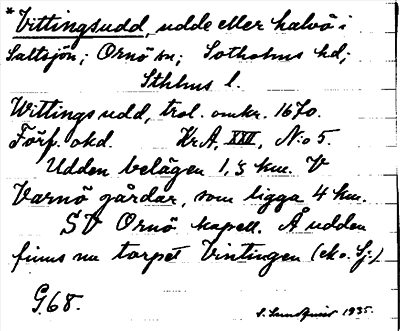 *Vittingsudd, udde eller halvö i
Saltsjön; Ornö sn; Sotholms hd;
Sthlms l.
Wittings udd, trol. omkr. 1670.
Förf. okd. Kr.A, XXII, No 5.
Udden belägen 1,3 km. V
Varnö gårdar, som ligga 4 km.
SV Ornö kapell. Å udden
finns nu torpet Vintingen (ek. Sj.)
G68.
S. Lundqvist 1935.